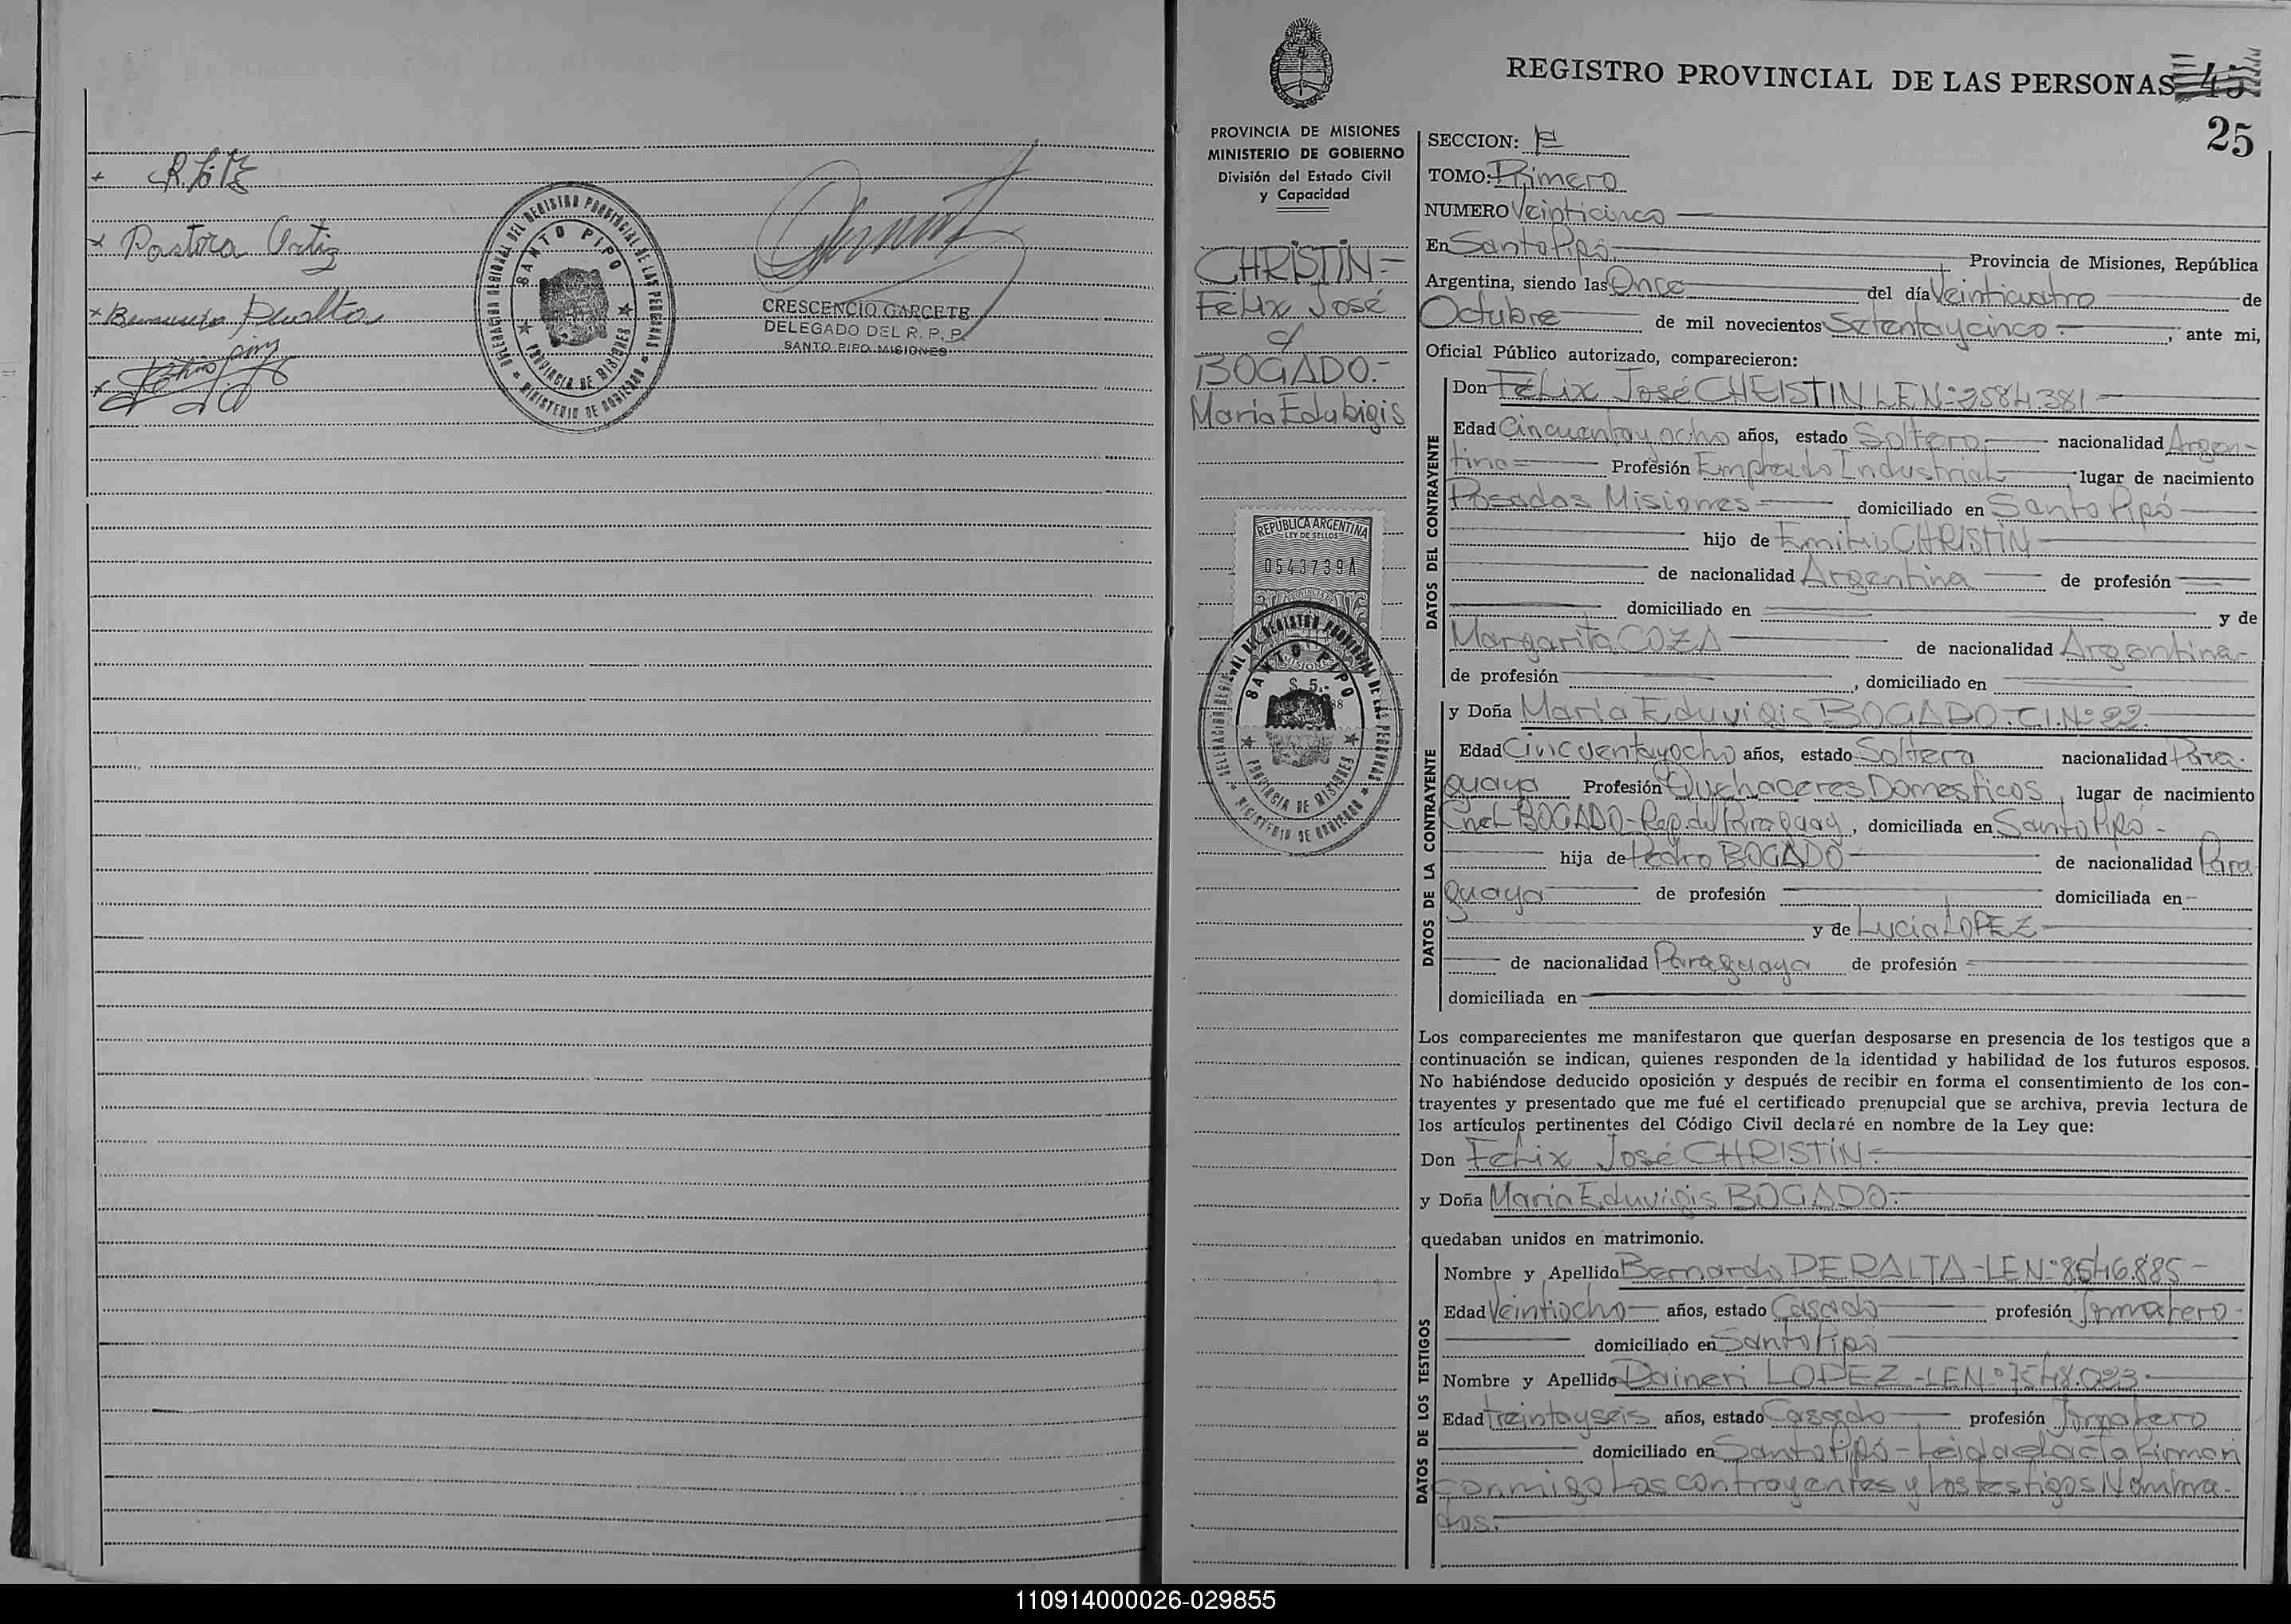 Pastora Ortiz
Peralta
DELEGACION REGIONAL DEL REGISTRO PROVINCIAL DE LAS PERSONAS
SANTO PIPO
PROVINCIA DE MISIONES
MINISTERIO DE GOBIERNO
CRESCENCIO GARCETE
DELEGADO DEL R. P. P.
SANTO PIPO MISIONES
PROVINCIA DE MISIONES
MINISTERIO DE GOBIERNO
División del Estado Civil
y Capacidad
CHRISTIN=
Félix José
BOGADO.-
María Edubigis
REPUBLICA ARGENTINA
LEY DE SELLOS
0543739A
MISIONES
$ 5.-
DELEGACION REGIONAL DEL REGISTRO PROVINCIAL DE LAS PERSONAS
SANTO PIPO
PROVINCIA DE MISIONES
MINISTERIO DE GOBIERNO
REGISTRO PROVINCIAL DE LAS PERSONAS 45
25
SECCION:
TOMO: Primero
NUMERO Veinticinco
En Santo Pipó
Provincia de Misiones, República
Argentina, siendo las Once del día Veinticuatro de
Octubre de mil novecientos Setentaycinco.- ; ante mi,
Oficial Público autorizado, comparecieron:
DATOS DEL CONTRAYENTE
Don Félix José CHRISTIN L.E.Nº 2584.381
Edad Cincuentayocho años, estado Soltero nacionalidad Argen-
tina= Profesión Empleado Industrial lugar de nacimiento
Posadas Misiones domiciliado en Santo Pipó
hijo de Emilio CHRISTIN
de nacionalidad Argentina de profesión
domiciliado en y de
Margarita COZA de nacionalidad Argentina-
de profesión , domiciliado en
DATOS DE LA CONTRAYENTE
y Doña María Eduvigis BOGADO.C.I.Nº 22.
Edad Cincuentayocho años, estado Soltera nacionalidad Para-
guaya Profesión Quehaceres Domesticos, lugar de nacimiento
Cnel BOGADO-Rep.del Paraguay, domiciliada en Santo Pipó-
hija de Pedro BOGADO de nacionalidad Para
guaya de profesión domiciliada en
y de Lucia LOPEZ
de nacionalidad Paraguaya de profesión
domiciliada en
Los comparecientes me manifestaron que querían desposarse en presencia de los testigos que a
continuación se indican, quienes responden de la identidad y habilidad de los futuros esposos.
No habiéndose deducido oposición y después de recibir en forma el consentimiento de los con-
trayentes y presentado que me fué el certificado prenupcial que se archiva, previa lectura de
los artículos pertinentes del Código Civil declaré en nombre de la Ley que:
Don Félix José CHRISTIN
y Doña María Eduvigis BOGADO.-
quedaban unidos en matrimonio.
DATOS DE LOS TESTIGOS
Nombre y Apellido Bernardo PERALTA-L.E.Nº 8546.885-
Edad Veintiocho años, estado Casado profesión Jornalero-
domiciliado en Santo Pipó
Nombre y Apellido Daineri LOPEZ-L.E.Nº 7548.023-
Edad treintayseis años, estado Casado profesión Jornalero
domiciliado en Santo Pipó-Leida el acta firman
conmigo los contrayentes y los testigos Nombra-
dos.
110914000026-029855